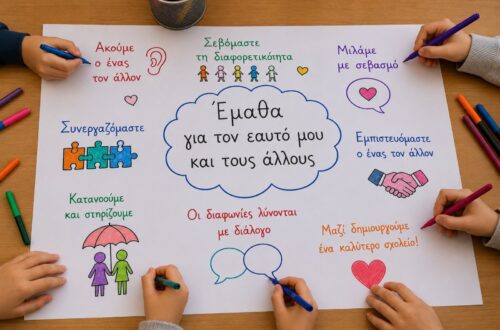 Ακούμε
ο ένας
τον άλλον
Σεβόμαστε
τη διαφορετικότητα
Μιλάμε
με σεβασμό
Συνεργαζόμαστε
Έμαθα
για τον εαυτό μου
και τους άλλους
Εμπιστευόμαστε
ο ένας τον άλλον
Κατανοούμε
και στηρίζουμε
Οι διαφωνίες λύνονται
με διάλογο
Μαζί δημιουργούμε
ένα καλύτερο σχολείο!